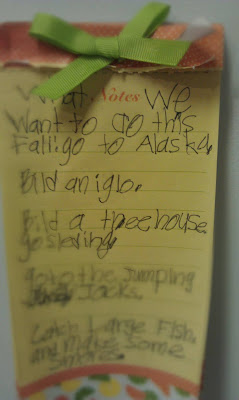 What Notes We
Want to do this
Fall: go to Alaska.
Bild an iglo.
Bild a treehouse.
go sleding.
go to the jumping
Jacks.
Catch Large Fish.
and make some
smores.